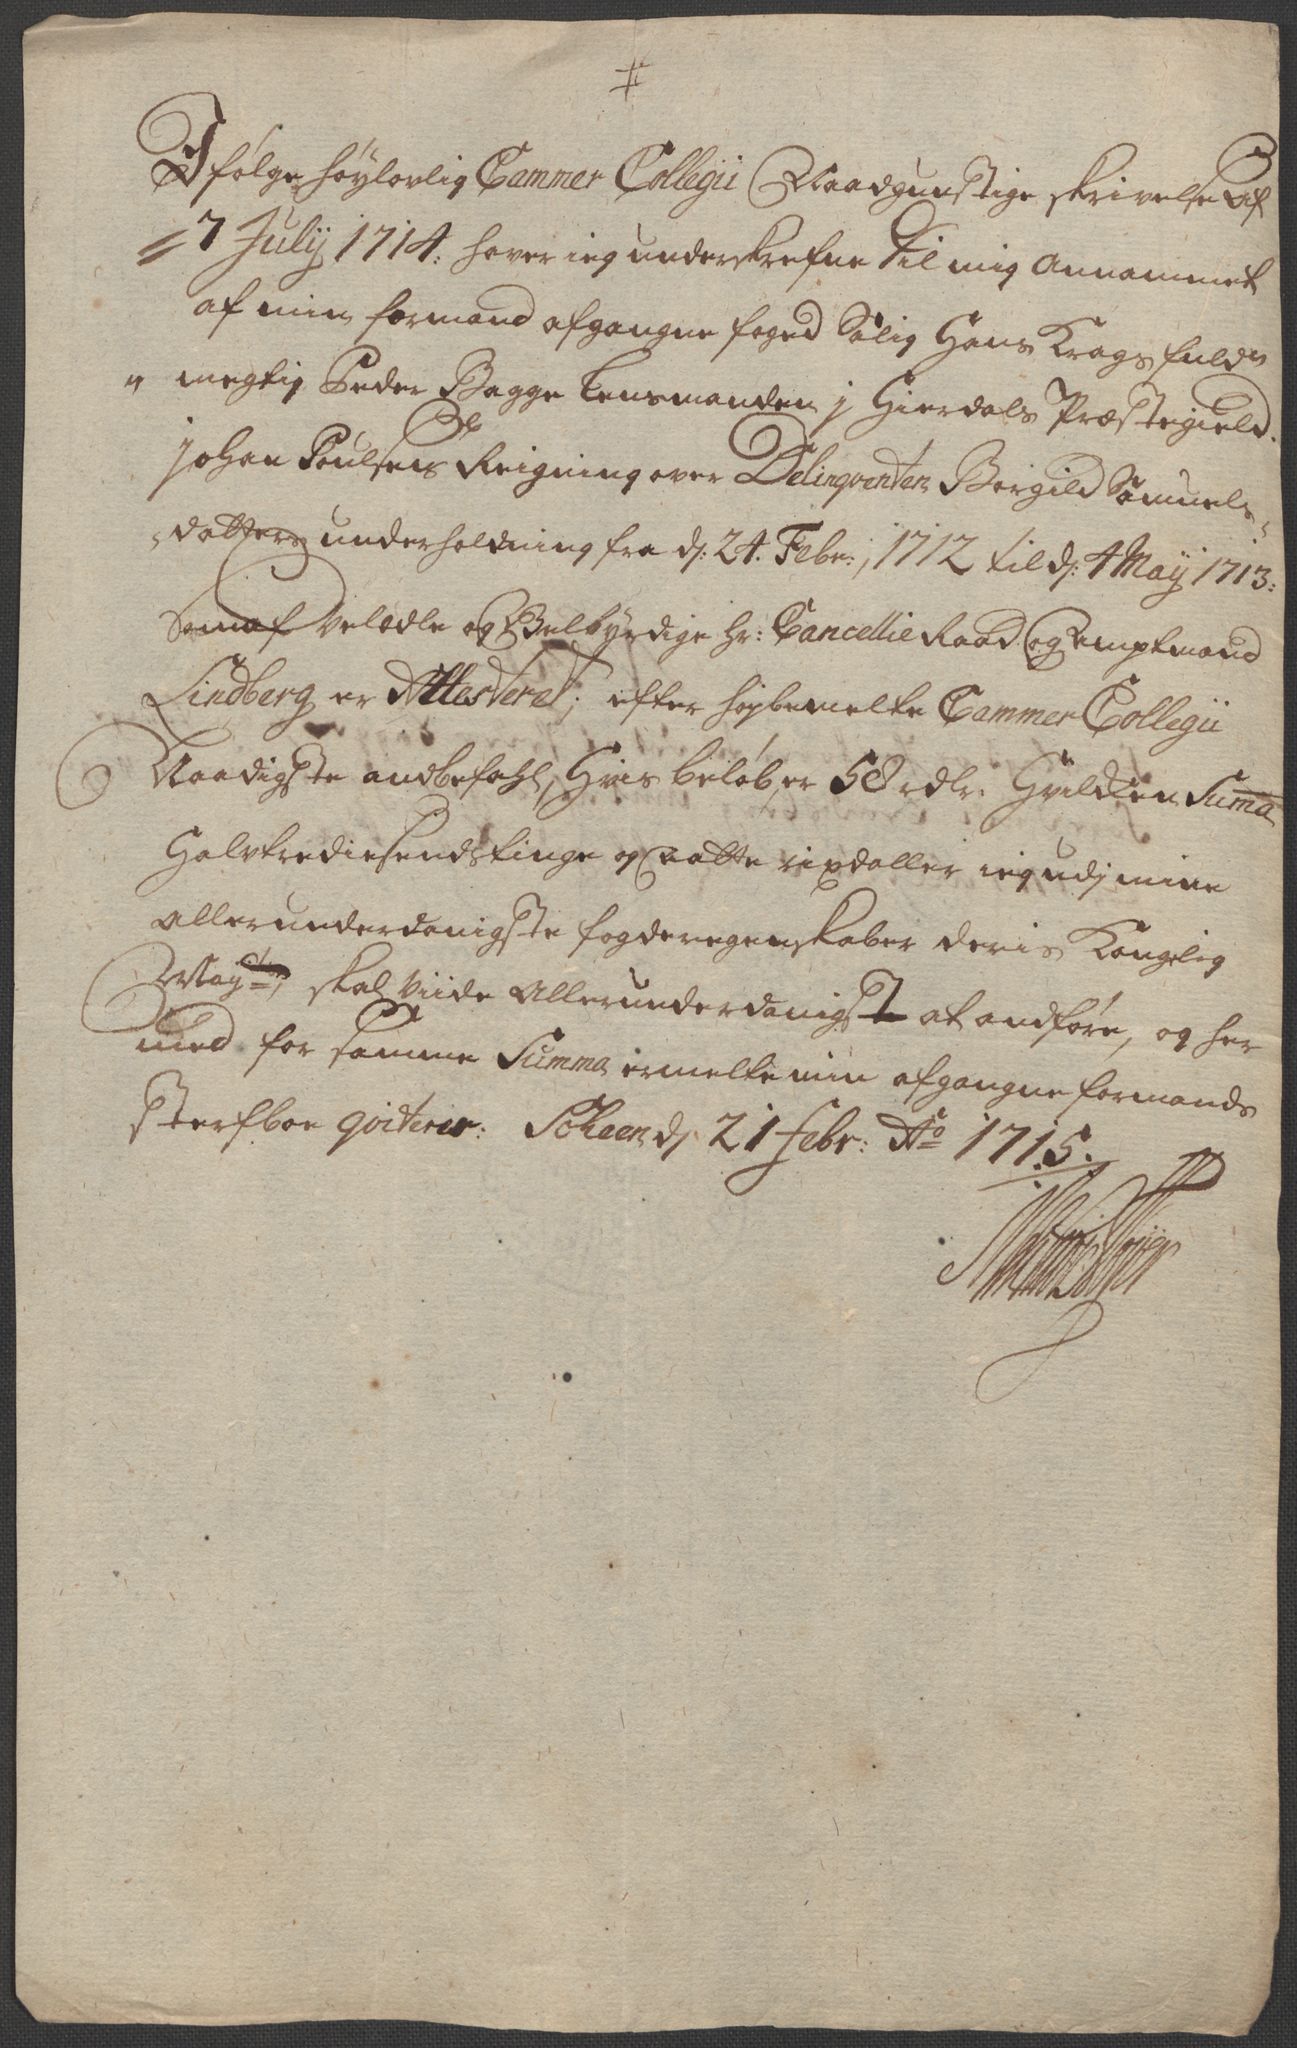 I følge høylovlig Cammer Collegii Naadgunstige skrivelse af
7 Julij 1714: haver ieg underskrefne til mig Annammet
af min formand afgangne foged Salig Hans Krags fuld-
megtig Peder Bagge Lensmanden j Hierdals Præstegield
johan Poulsens Reigning over Delinqventen Borgild Samuels-
datters underholdning fra d: 24. Febr: 1712 til d: 4 Maij 1713:
Som af Velædle og Velbyrdige hr: Cancellie Raad og Amptmand
Lindberg er Attesteret; efter høybemelte Cammer Collegii
Naadigste andbefahl, Hvis beløb er 58 rdlr. Hvilken Suma
Halvtrediesendstinge og aatte rixdaller ieg udj mine
Allerunderdanigste fogderegenskaber deris Kongelig
May:tt skal viide Allerunderdanigst at andføre, og her
med for samme Summa ermelte min afgangne formands
sterfboe qviterer. Scheen d: 21 febr: Ao 1715.